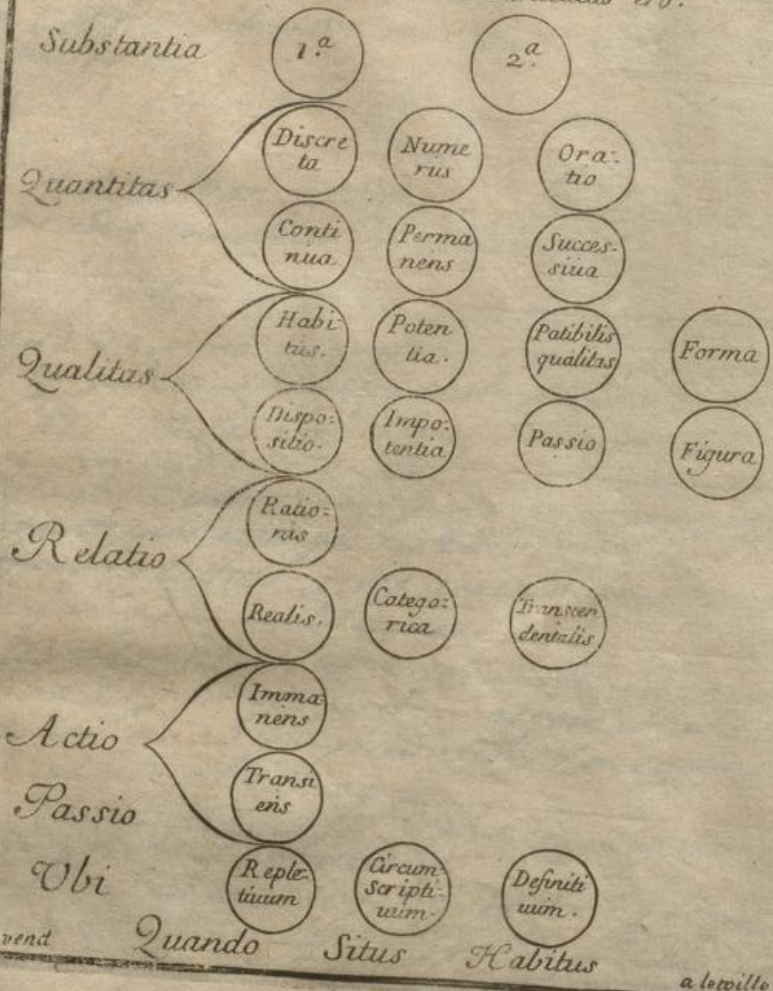 Substantia 1.a 2.a
Quantitas
Discre
ta
Nume
rus
Ora-
tio
Conti
nua
Perma
nens
Succes-
siua
Qualitas
Habi-
tus.
Poten
tia.
Patibilis
qualitas
Forma
Dispo-
sitio.
Impo-
tentia
Passio
Figura
Relatio
Ratio-
nis
Realis.
Catego-
rica
Transcen
dentalis
Actio
Imma-
nens
Transi
ens
Passio
Vbi
Reple-
tiuum
Circum
scripti-
uum.
Definiti
uum.
Quando Situs Habitus
vend